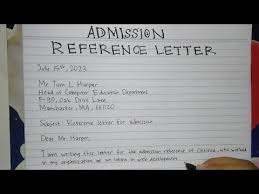 ADMISSION
REFERENCE LETTER
July 15th, 2023
Mr Tom L Harper
Head of Computer Education Department
F-30, Oak Drive Lane
Manchester, MA, 661120
Subject: Reference letter for admission
Dear Mr. Harper,
I am writing this letter for the admission reference of Chelsea, who worked
in my organization as an intern in web development